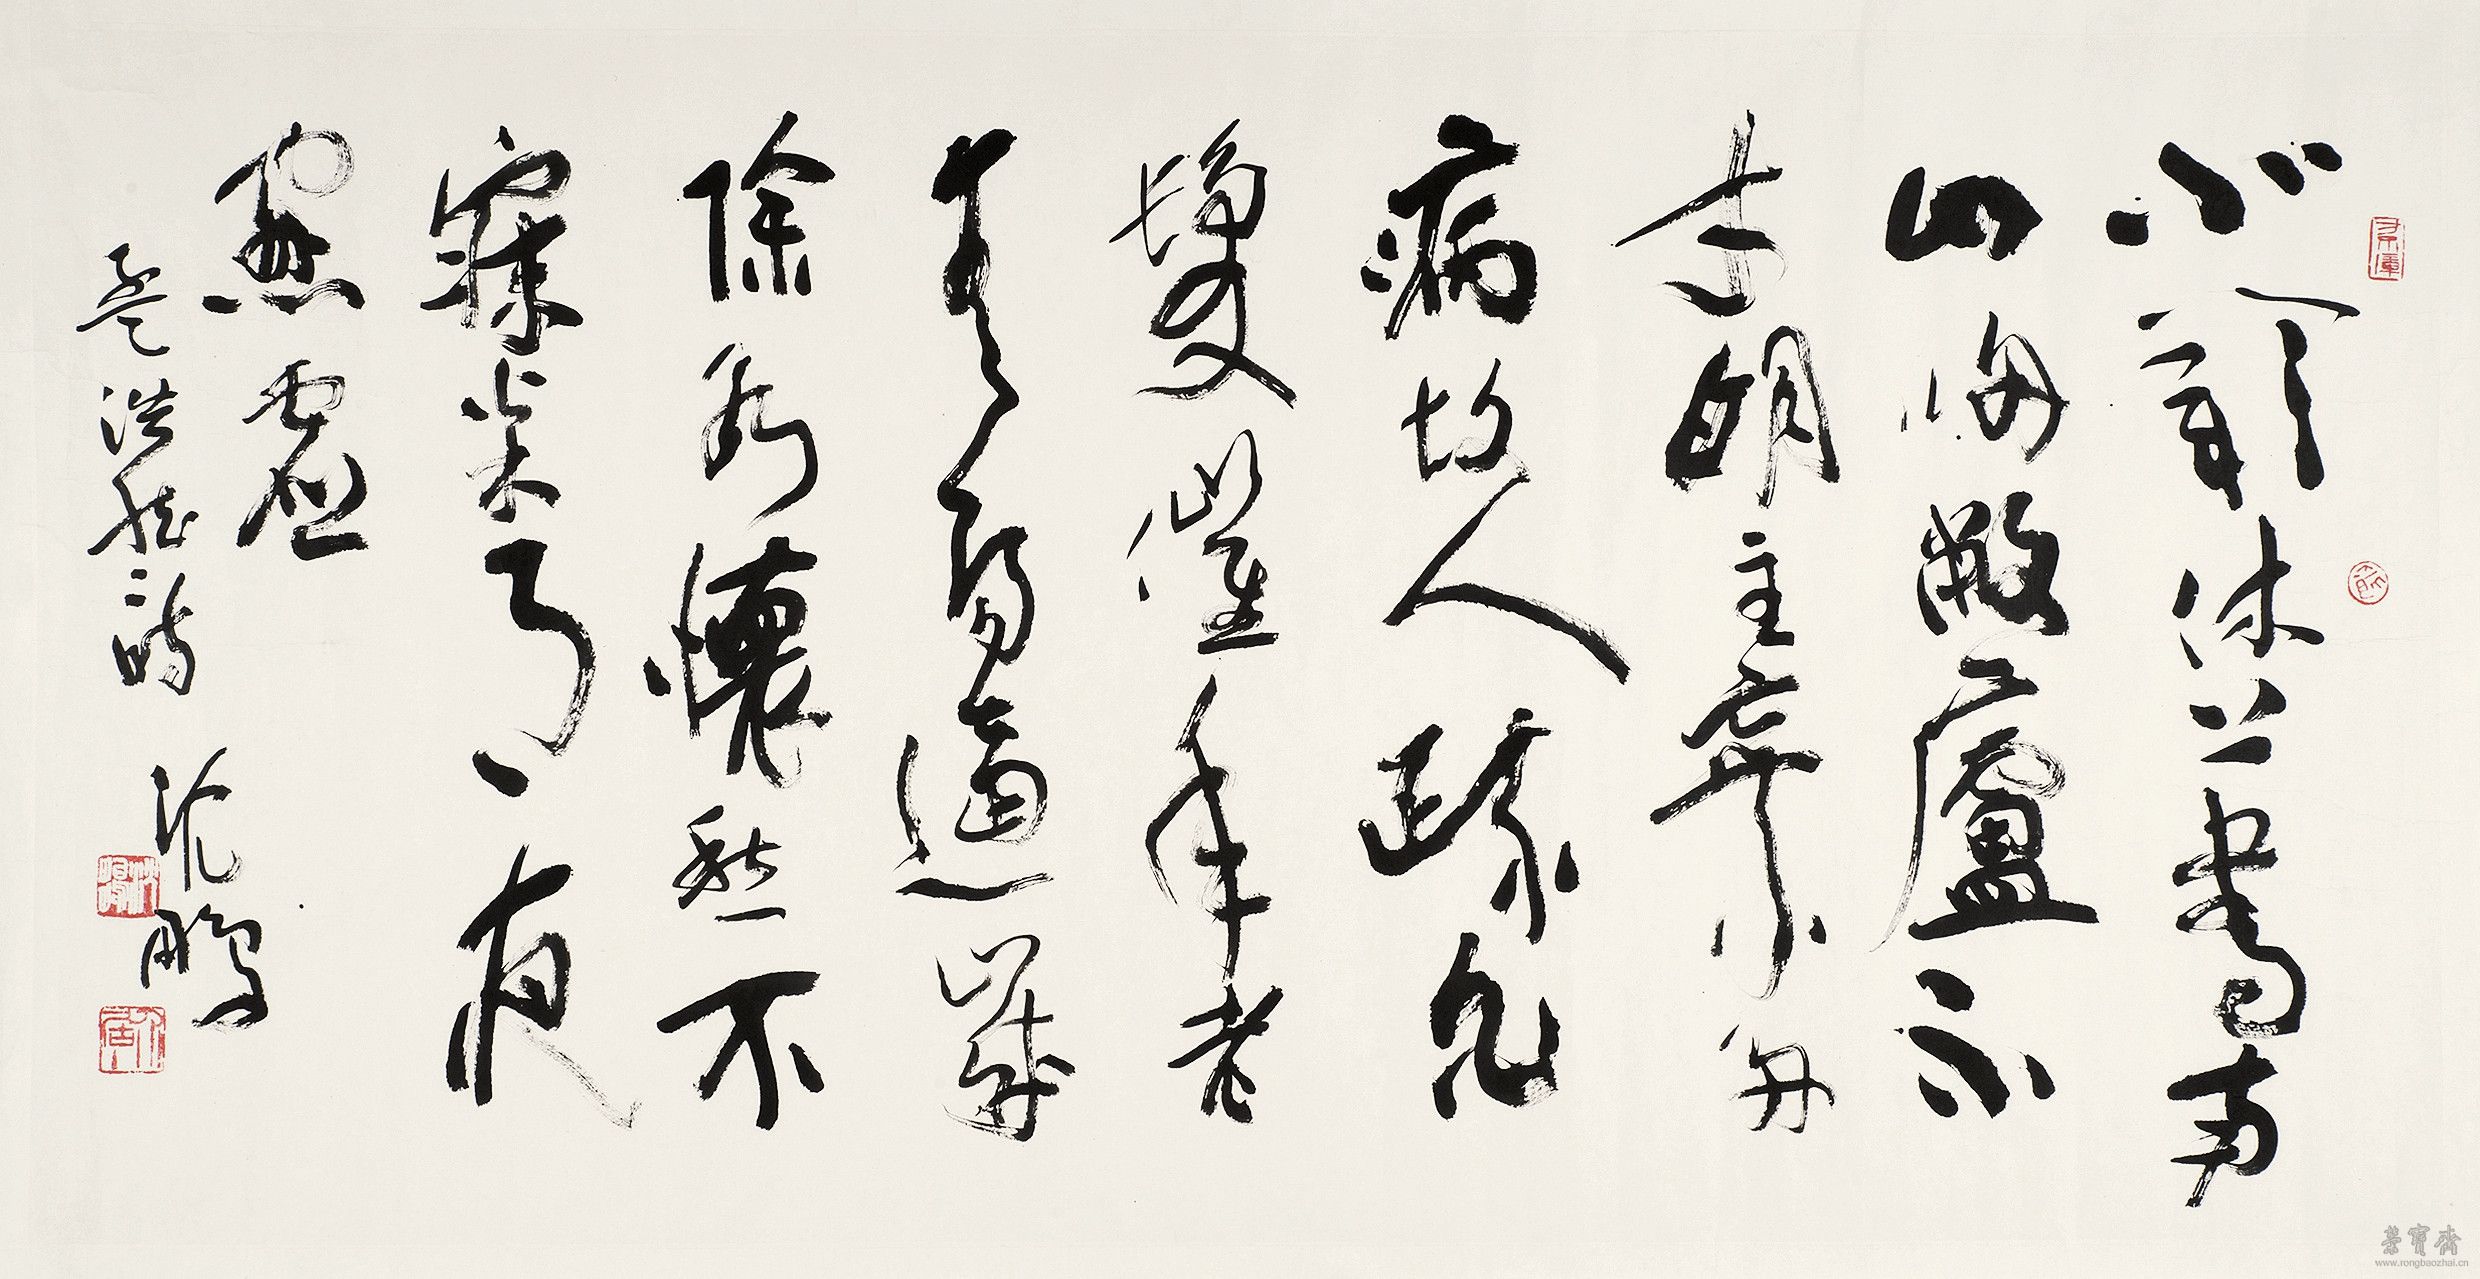 北闕休上書南
山歸敝廬不
才明主棄多
病故人疎白
髮催年老
青陽逼歲
除永懷愁不
寐松月夜
窗虛
孟浩然詩 沈鵬
榮寶齋
www.rongbaozhai.cn